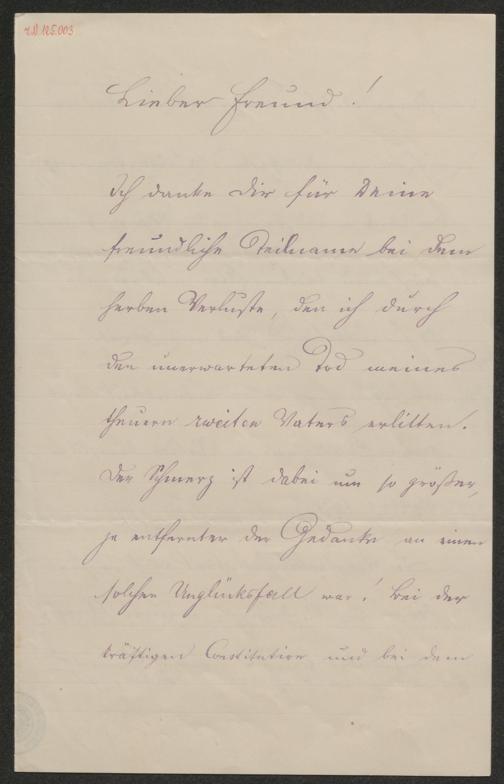 I.N. 125.003
Lieber Freund!
Ich danke Dir für Deine
freundliche Teilname bei dem
herben Verluste, den ich durch
den unerwarteten Tod meines
theuern zweiten Vaters erlitten.
Der Schmerz ist dabei um so größer,
je entfernter der Gedanke an einen
solchen Unglücksfall war! Bei der
kräftigen Constitution und bei dem